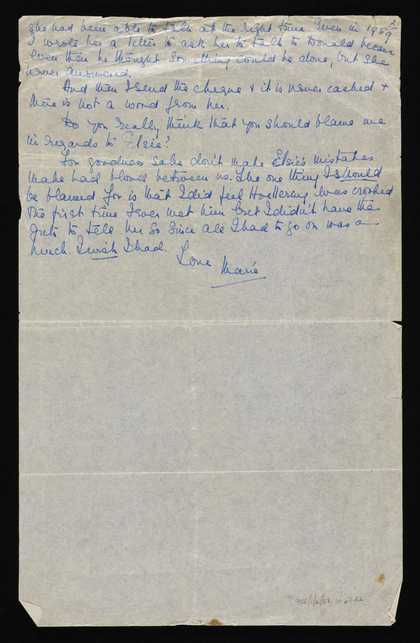 2
she had been able to talk at the right time. Even in 1959
I wrote her a letter to ask her to talk to Donald because
even then he thought something could be done, but she
never answered.
And then I send the cheque & it is never cashed &
there is not a word from her.
Do you really think that you should blame me
in regards to Elsie?
For goodness sake don't make Elsie's mistakes
make bad blood between us. The one thing I should
be blamed for is that I did feel Hoellering was crooked
the first time I ever met him but I didn't have the
guts to tell her so since all I had to go on was a
hunch. I wish I had.
Love
Marie